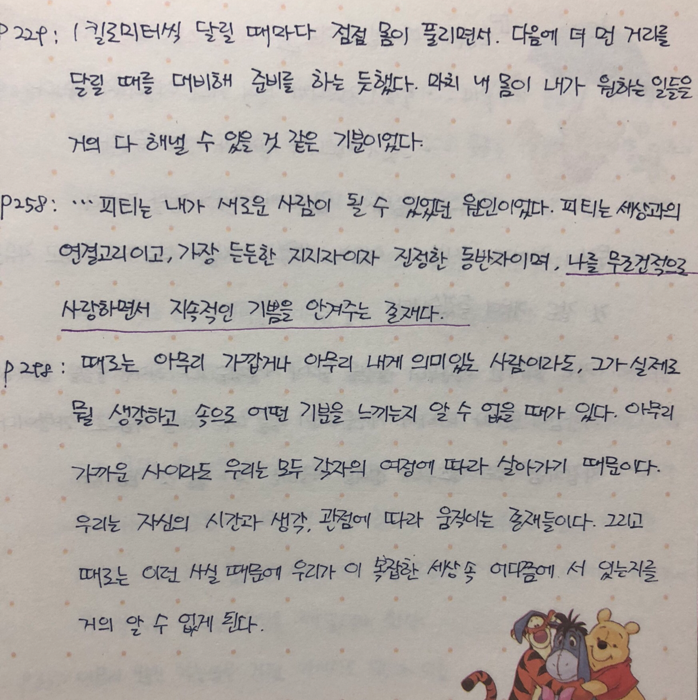 P229: 1킬로미터씩 달릴 때마다 점점 몸이 풀리면서. 다음에 더 먼 거리를
달릴 때를 대비해 준비를 하는 듯했다. 마치 내 몸이 내가 원하는 일들을
거의 다 해낼 수 있을 것 같은 기분이었다.
P258: … 피티는 내가 새로운 사람이 될 수 있었던 원인이었다. 피티는 세상과의
연결고리이고, 가장 든든한 지지자이자 진정한 동반자이며, 나를 무조건적으로
사랑하면서 지속적인 기쁨을 안겨주는 존재다.
P298: 때로는 아무리 가깝거나 아무리 내게 의미있는 사람이라도, 그가 실제로
뭘 생각하고 속으로 어떤 기분을 느끼는지 알 수 없을 때가 있다. 아무리
가까운 사이라도 우리는 모두 각자의 여정에 따라 살아가기 때문이다.
우리는 자신의 시간과 생각, 관점에 따라 움직이는 존재들이다. 그리고
때로는 이런 사실 때문에 우리가 이 복잡한 세상 속 어디쯤에 서 있는지를
거의 알 수 없게 된다.